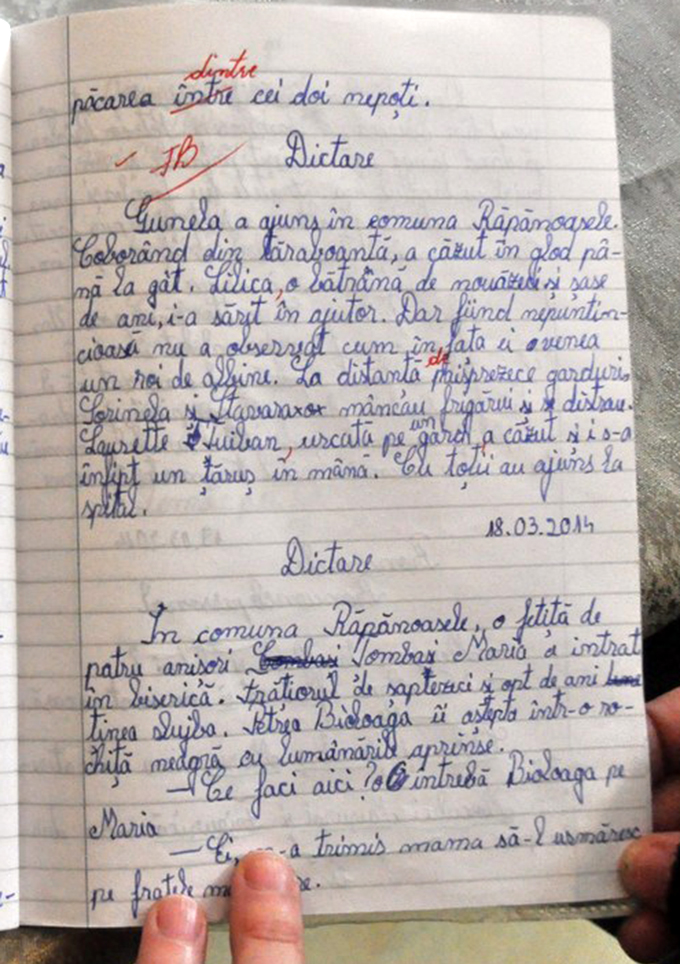 dintre
păcarea între cei doi nepoți.
FB Dictare
Gunela a ajuns în comuna Răpănoasele.
Coborând din tăraboanță, a căzut în glod pâ-
nă la gât. Lilica, o bătrână de nouăzeci și șase
de ani, i-a sărit în ajutor. Dar fiind nepuntin-
cioasă nu a observat cum în fața ei venea
un roi de albine. La distanță de paisprezece garduri,
Sorinela și mâncau frigărui și se distrau.
un
Laurette Țuiban, urcată pe gard, a căzut și i s-a
înfipt un țăruș în mână. Cu toții au ajuns la
spital.
18.03.2014
Dictare
În comuna Răpănoasele, o fetiță de
patru anișori Tombași Maria a intrat
în biserică. Frățiorul de șaptezeci și opt de ani
ținea slujba. Petrea Bioloaga îi aștepta într-o ro-
chiță neagră cu lumânările aprinse.
– Ce faci aici? o întrebă Bioloaga pe
Maria
– Ei, a trimis mama să-l urmăresc
pe fratele